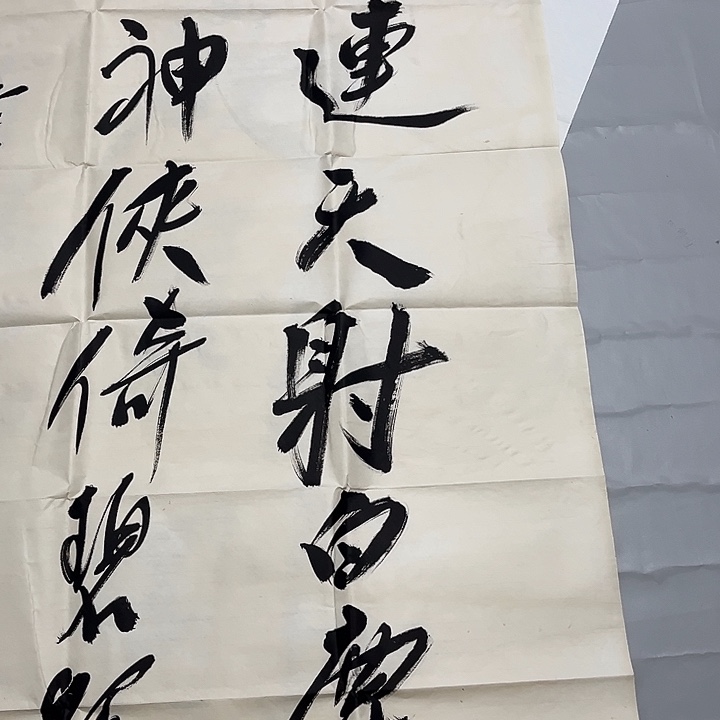 連天射白
神俠倚碧